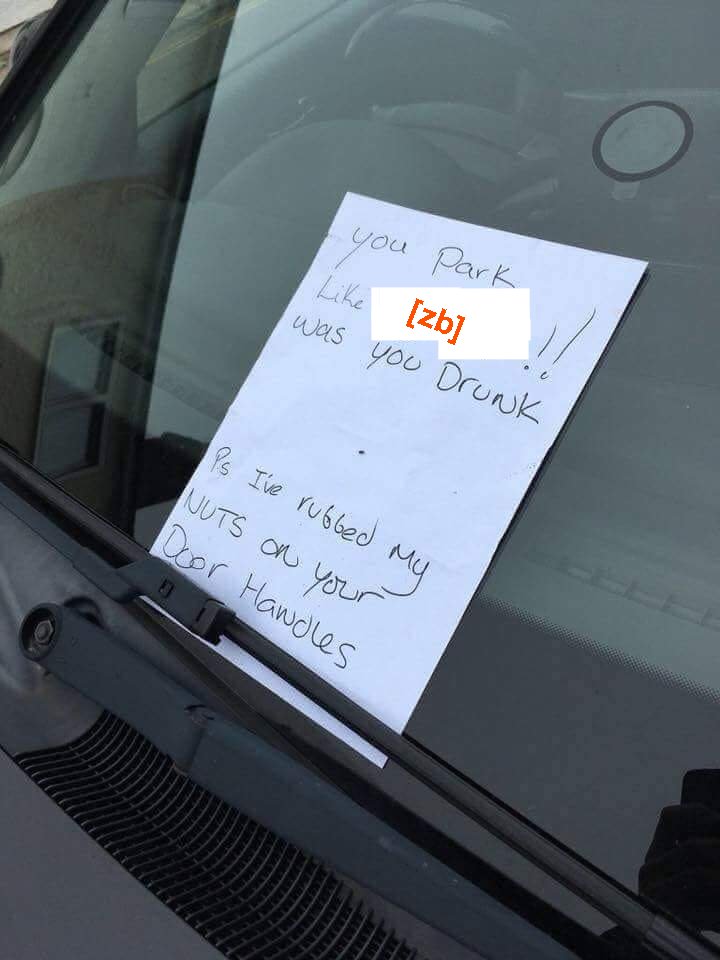 you Park
Like [zb] !!
was you Drunk
Ps I've rubbed my
NUTS on your
Door Handles